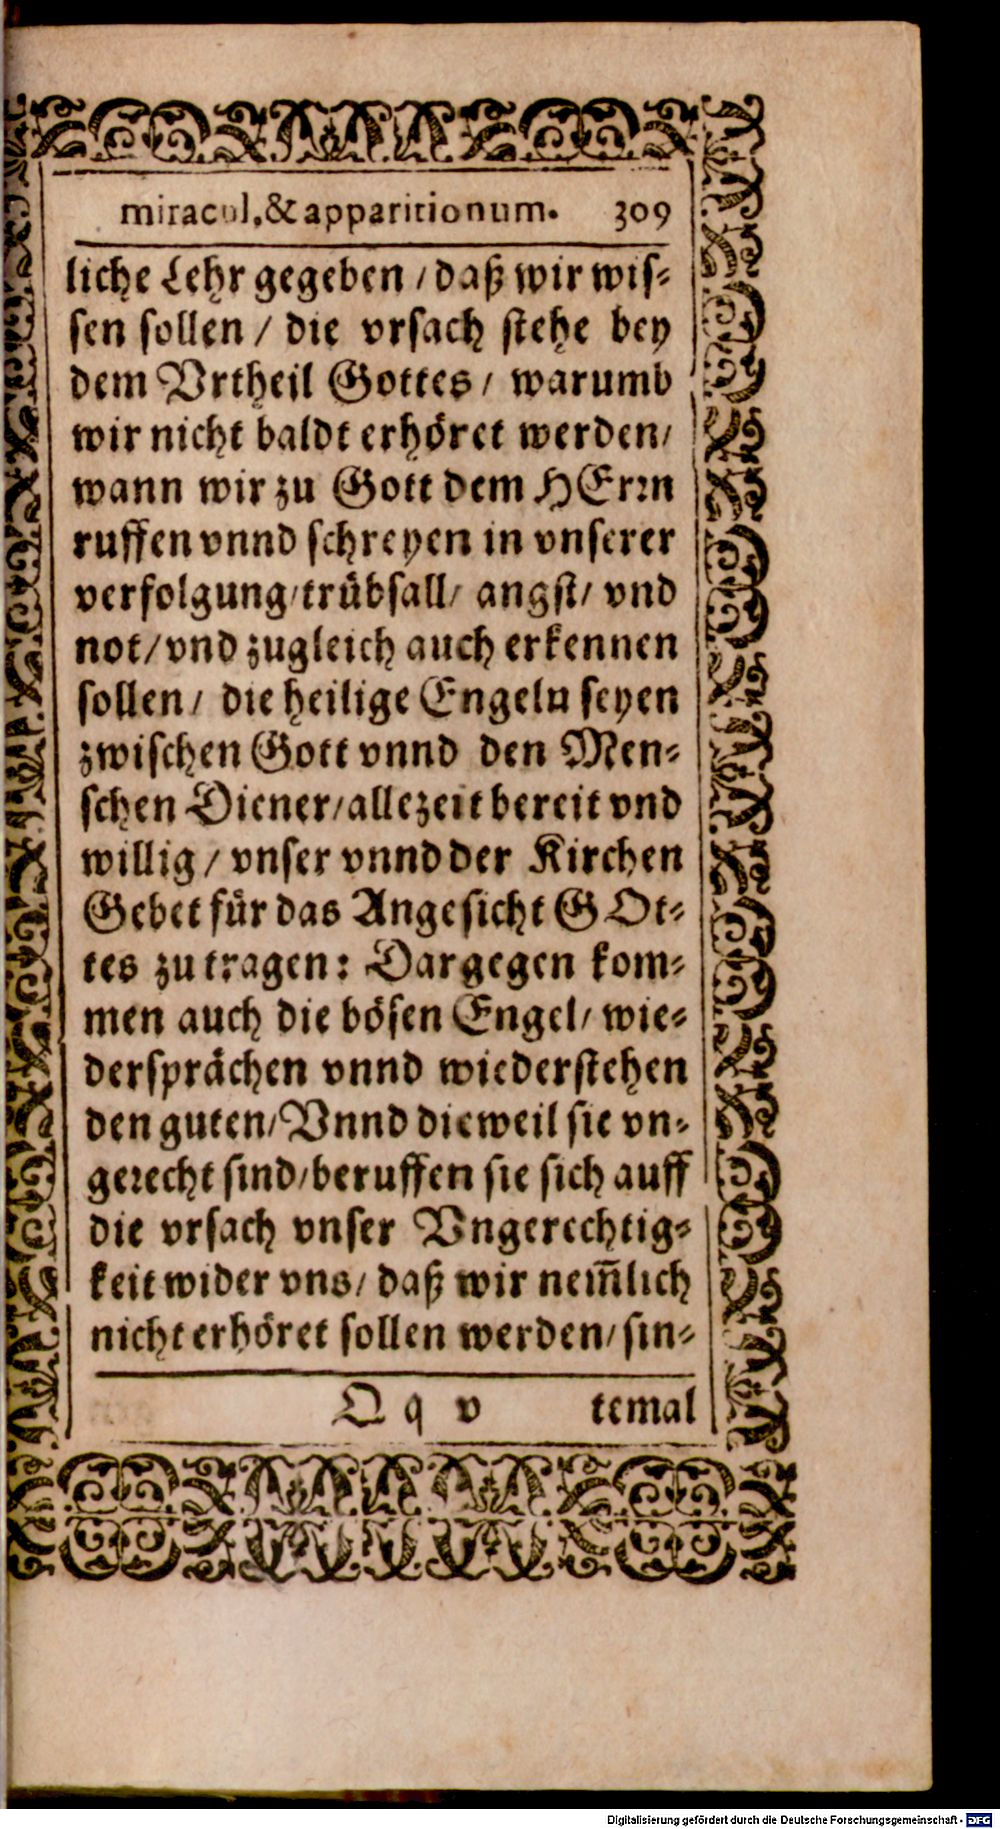 miracul,&apparitionum. 309
liche Lehr gegeben / daß wir wis⸗
sen sollen / die vrsach stehe bey
dem Vrtheil Gottes / warumb
wir nicht baldt erhöret werden /
wann wir zu Gott dem HErꝛn
ruffen vnnd schreyen in vnserer
verfolgung / trübsall / angst / vnd
not / vnd zugleich auch erkennen
sollen / die heilige Engeln seyen
zwischen Gott vnnd den Men⸗
schen Diener / allezeit bereit vnd
willig / vnser vnnd der Kirchen
Gebet für das Angesicht GOt⸗
tes zu tragen: Dargegen kom⸗
men auch die bösen Engel / wie⸗
dersprächen vnnd wiederstehen
den guten / Vnnd dieweil sie vn⸗
geꝛecht sind / beruffen sie sich auff
die vrsach vnser Vngerechtig⸗
keit wider vns / daß wir nem̃lich
nicht erhöret sollen werden / sin⸗
Q q v temal
Digitalisierung gefördert durch die Deutsche Forschungsgemeinschaft - DFG